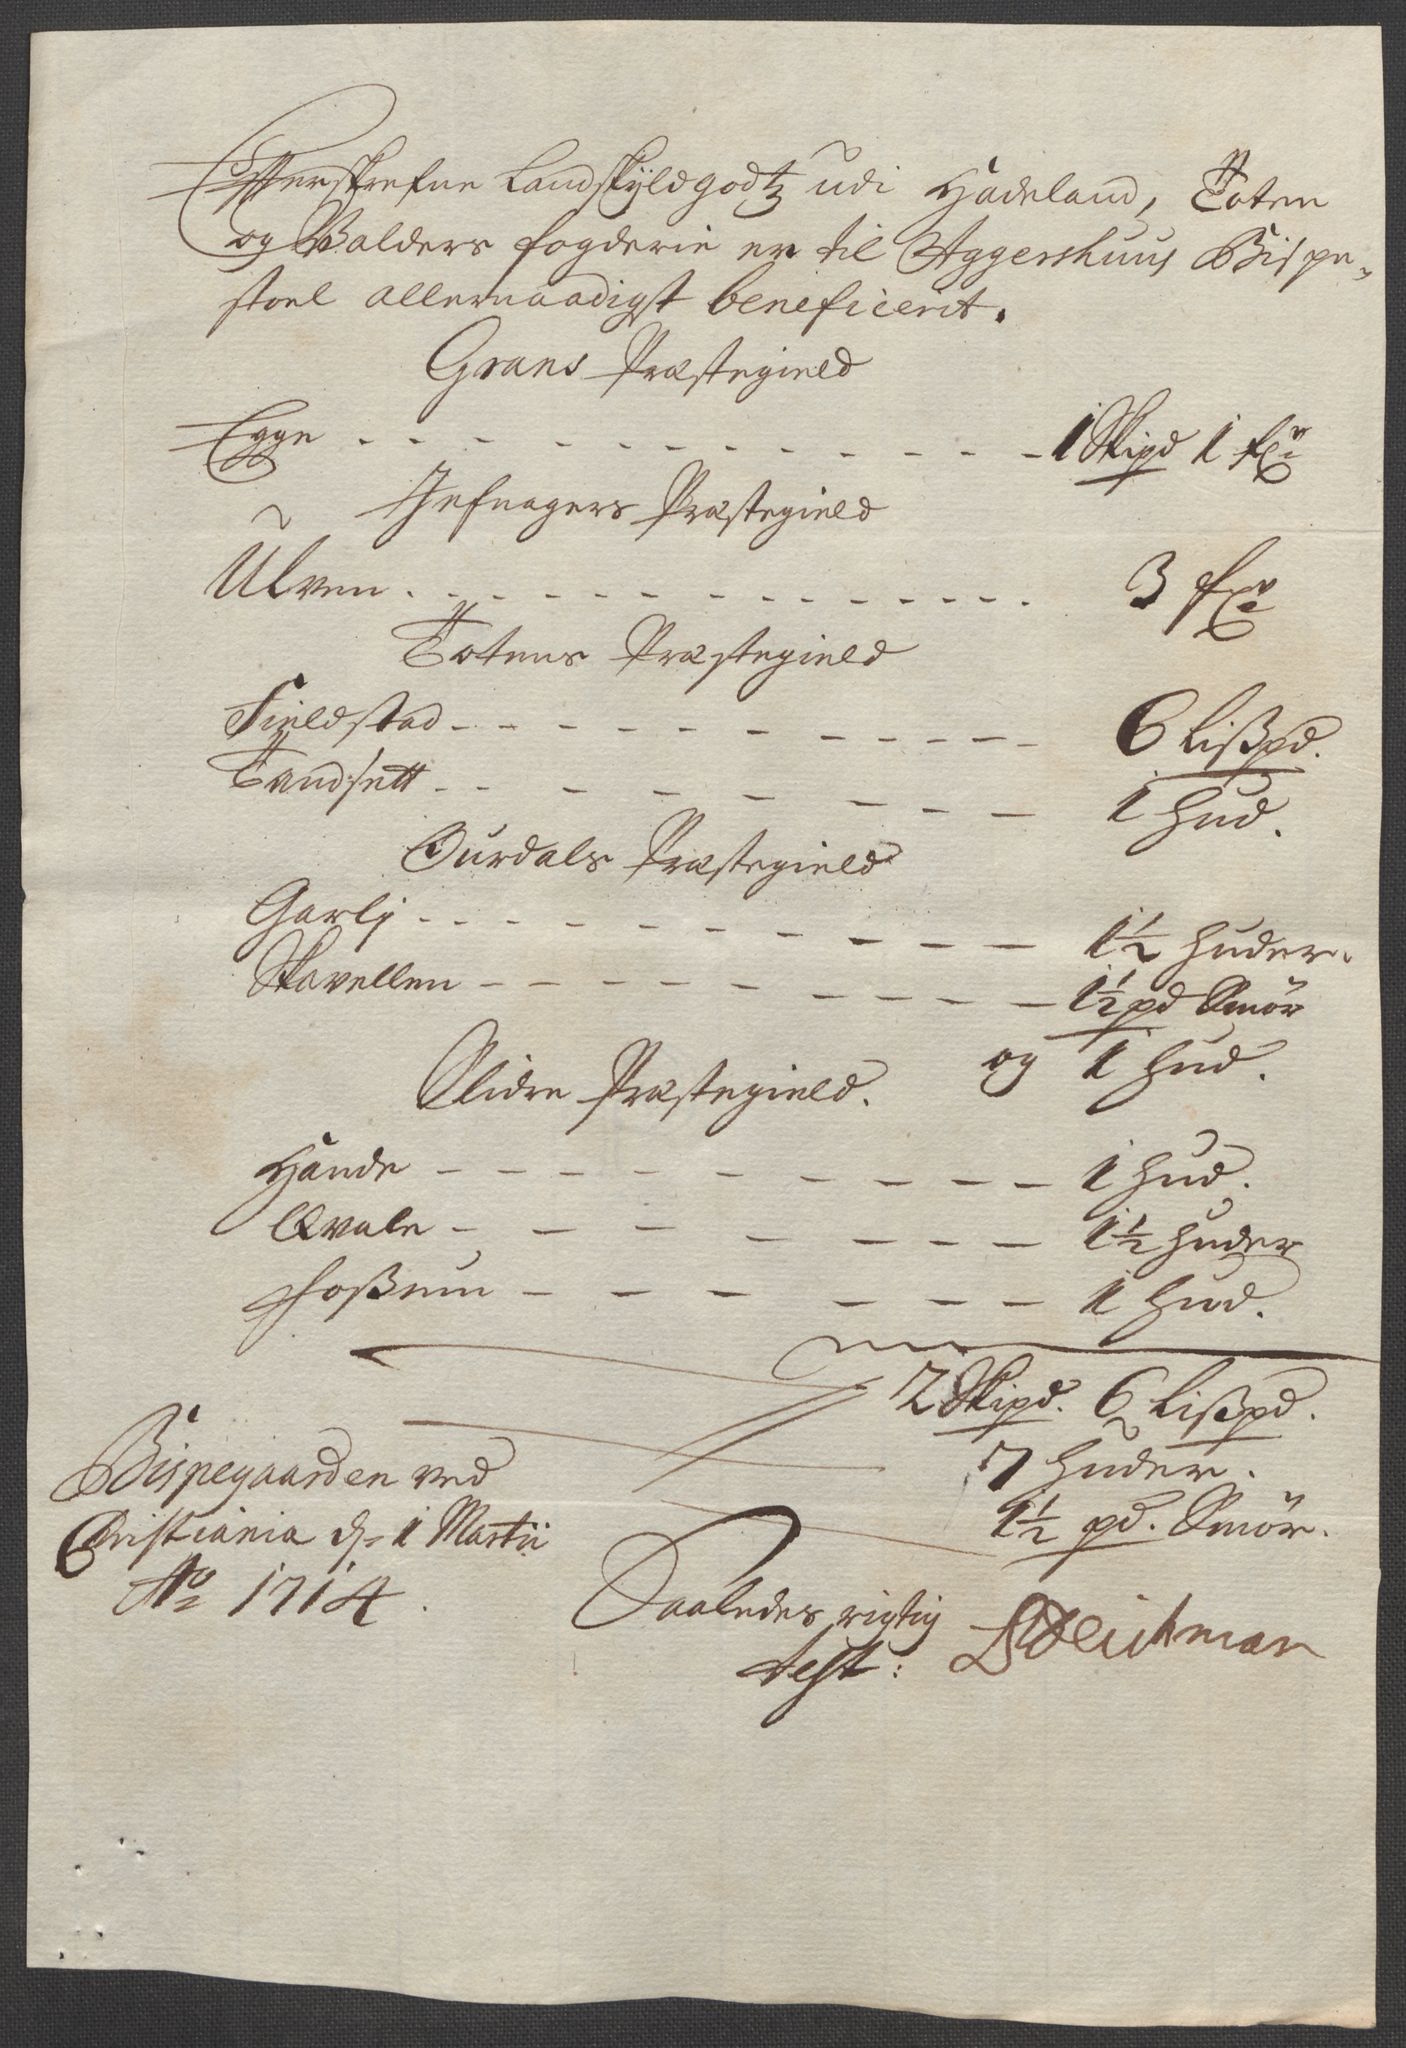 Effterskrefne Landskyldgodtz udi Hadeland, Toten
og Valders fogderie er til Aggershuus Bispe-
stoel allernaadigst beneficerit.
Grans Præstegield
Egge - - - - - - - - - - - 1 Skipd 1 fr:
Jefnagers Præstegield
Ulven - - - - - - - - - - - - 3 fr:
Totens Præstegield
Fieldstad - - - - - - - - - - 6 Lißpd.
Tandsett - - - - - - - - 1 hud.
Ourdals Præstegield
Garlj - - - - - - - - - - 1½ huder.
Skavellen - - - - - - - - - - 1½ pd Smør
og 1 hud.
Slidre Præstegield.
Hande - - - - - - - - - - 1 hud.
Qvale - - - - - - - 1½ huder
Foßum - - - - - - 1 hud.
2 Skipd. 6 Lißpd.
7 huder.
1½ pd. Smør.
Bispegaarden ved
Christiania d. 1 Martii
Ao 1714.
Saaledes rigtig
test: BDeichman